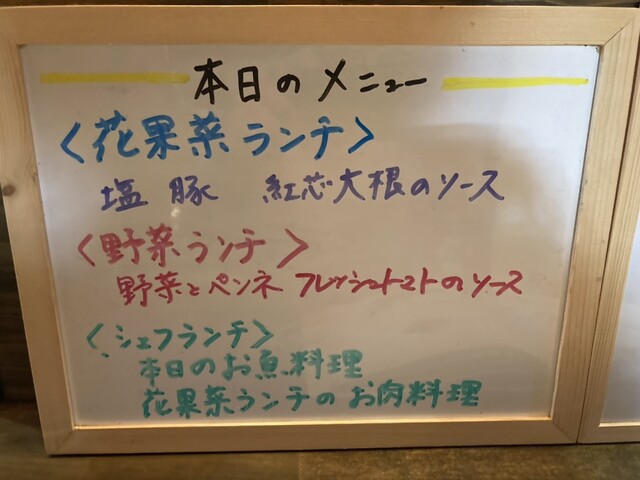 本日のメニュー
〈花果菜ランチ〉
塩豚 紅芯大根のソース
〈野菜ランチ〉
野菜とペンネ フレッシュトマトのソース
〈シェフランチ〉
本日のお魚料理
花果菜ランチのお肉料理